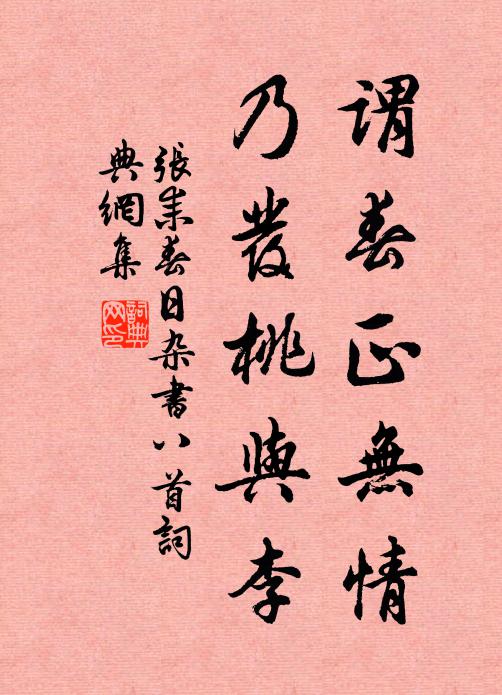 謂春正無情
乃發桃與李
張耒春日杂書八首詞
典網集
詞典
网印